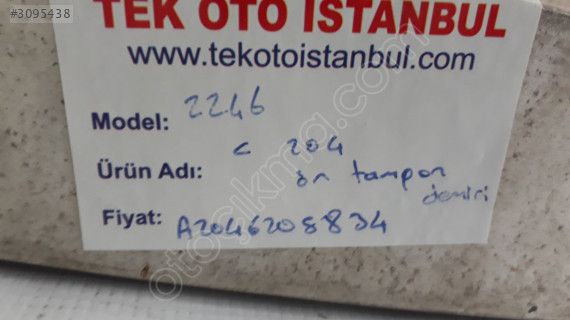 #3095438
TEK OTO İSTANBUL
www.tekotoistanbul.com
Model: 2246
Ürün Adı: C 204
ön tampon
demiri
Fiyat: A2046208834
otocikmaq.com